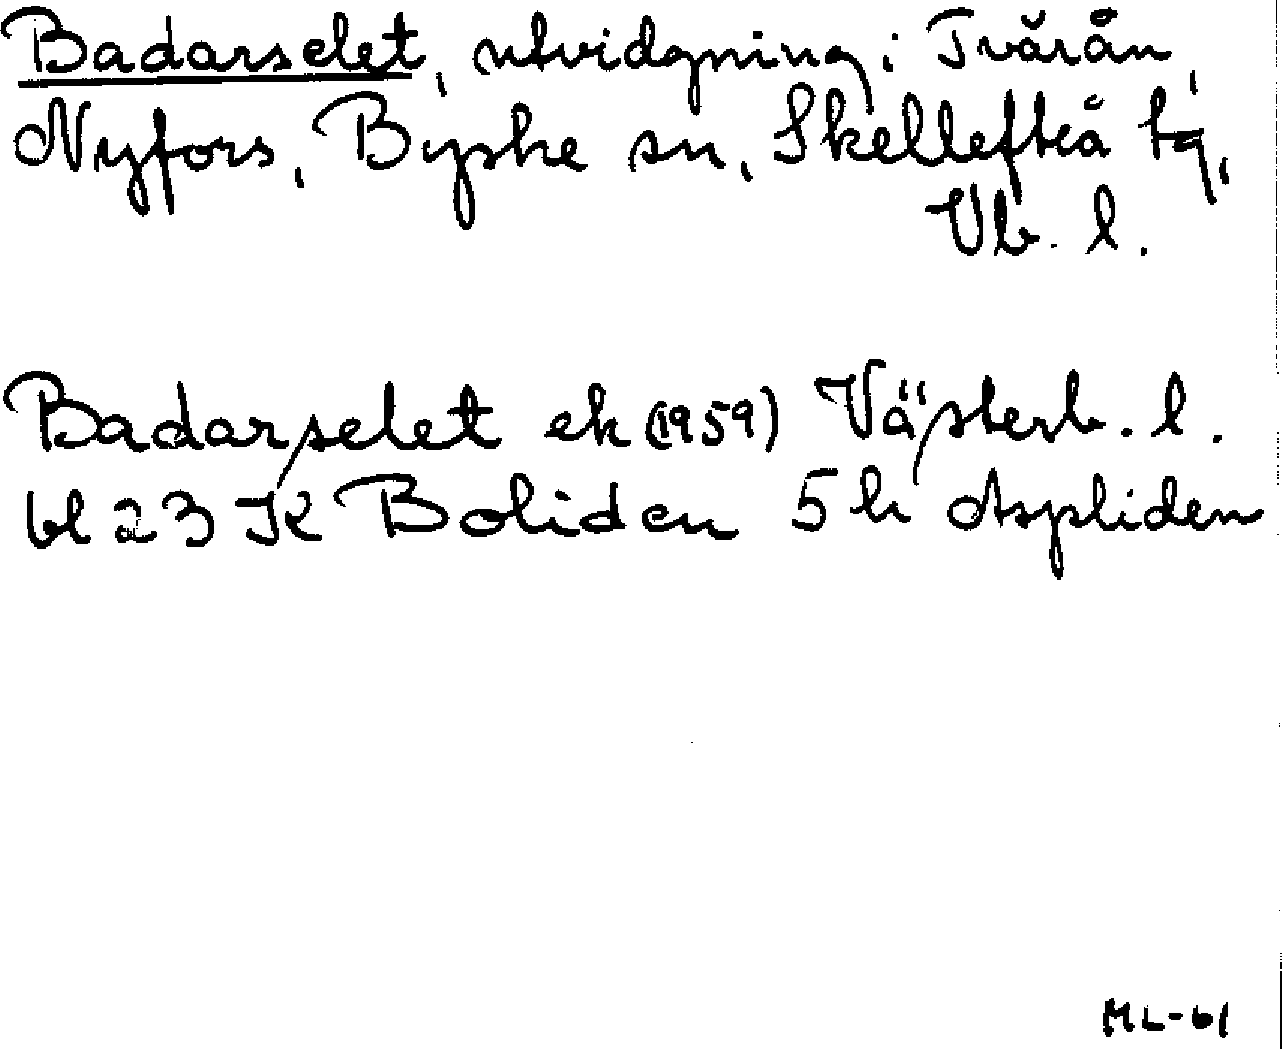 Badarselet, utvidgning i Tvärån,
Nyfors, Byske sn, Skellefteå tg,
Vb. l.
Badarselet ek (1959) Västerb. l.
bl 23 K Boliden 5 h Aspliden
ML-61